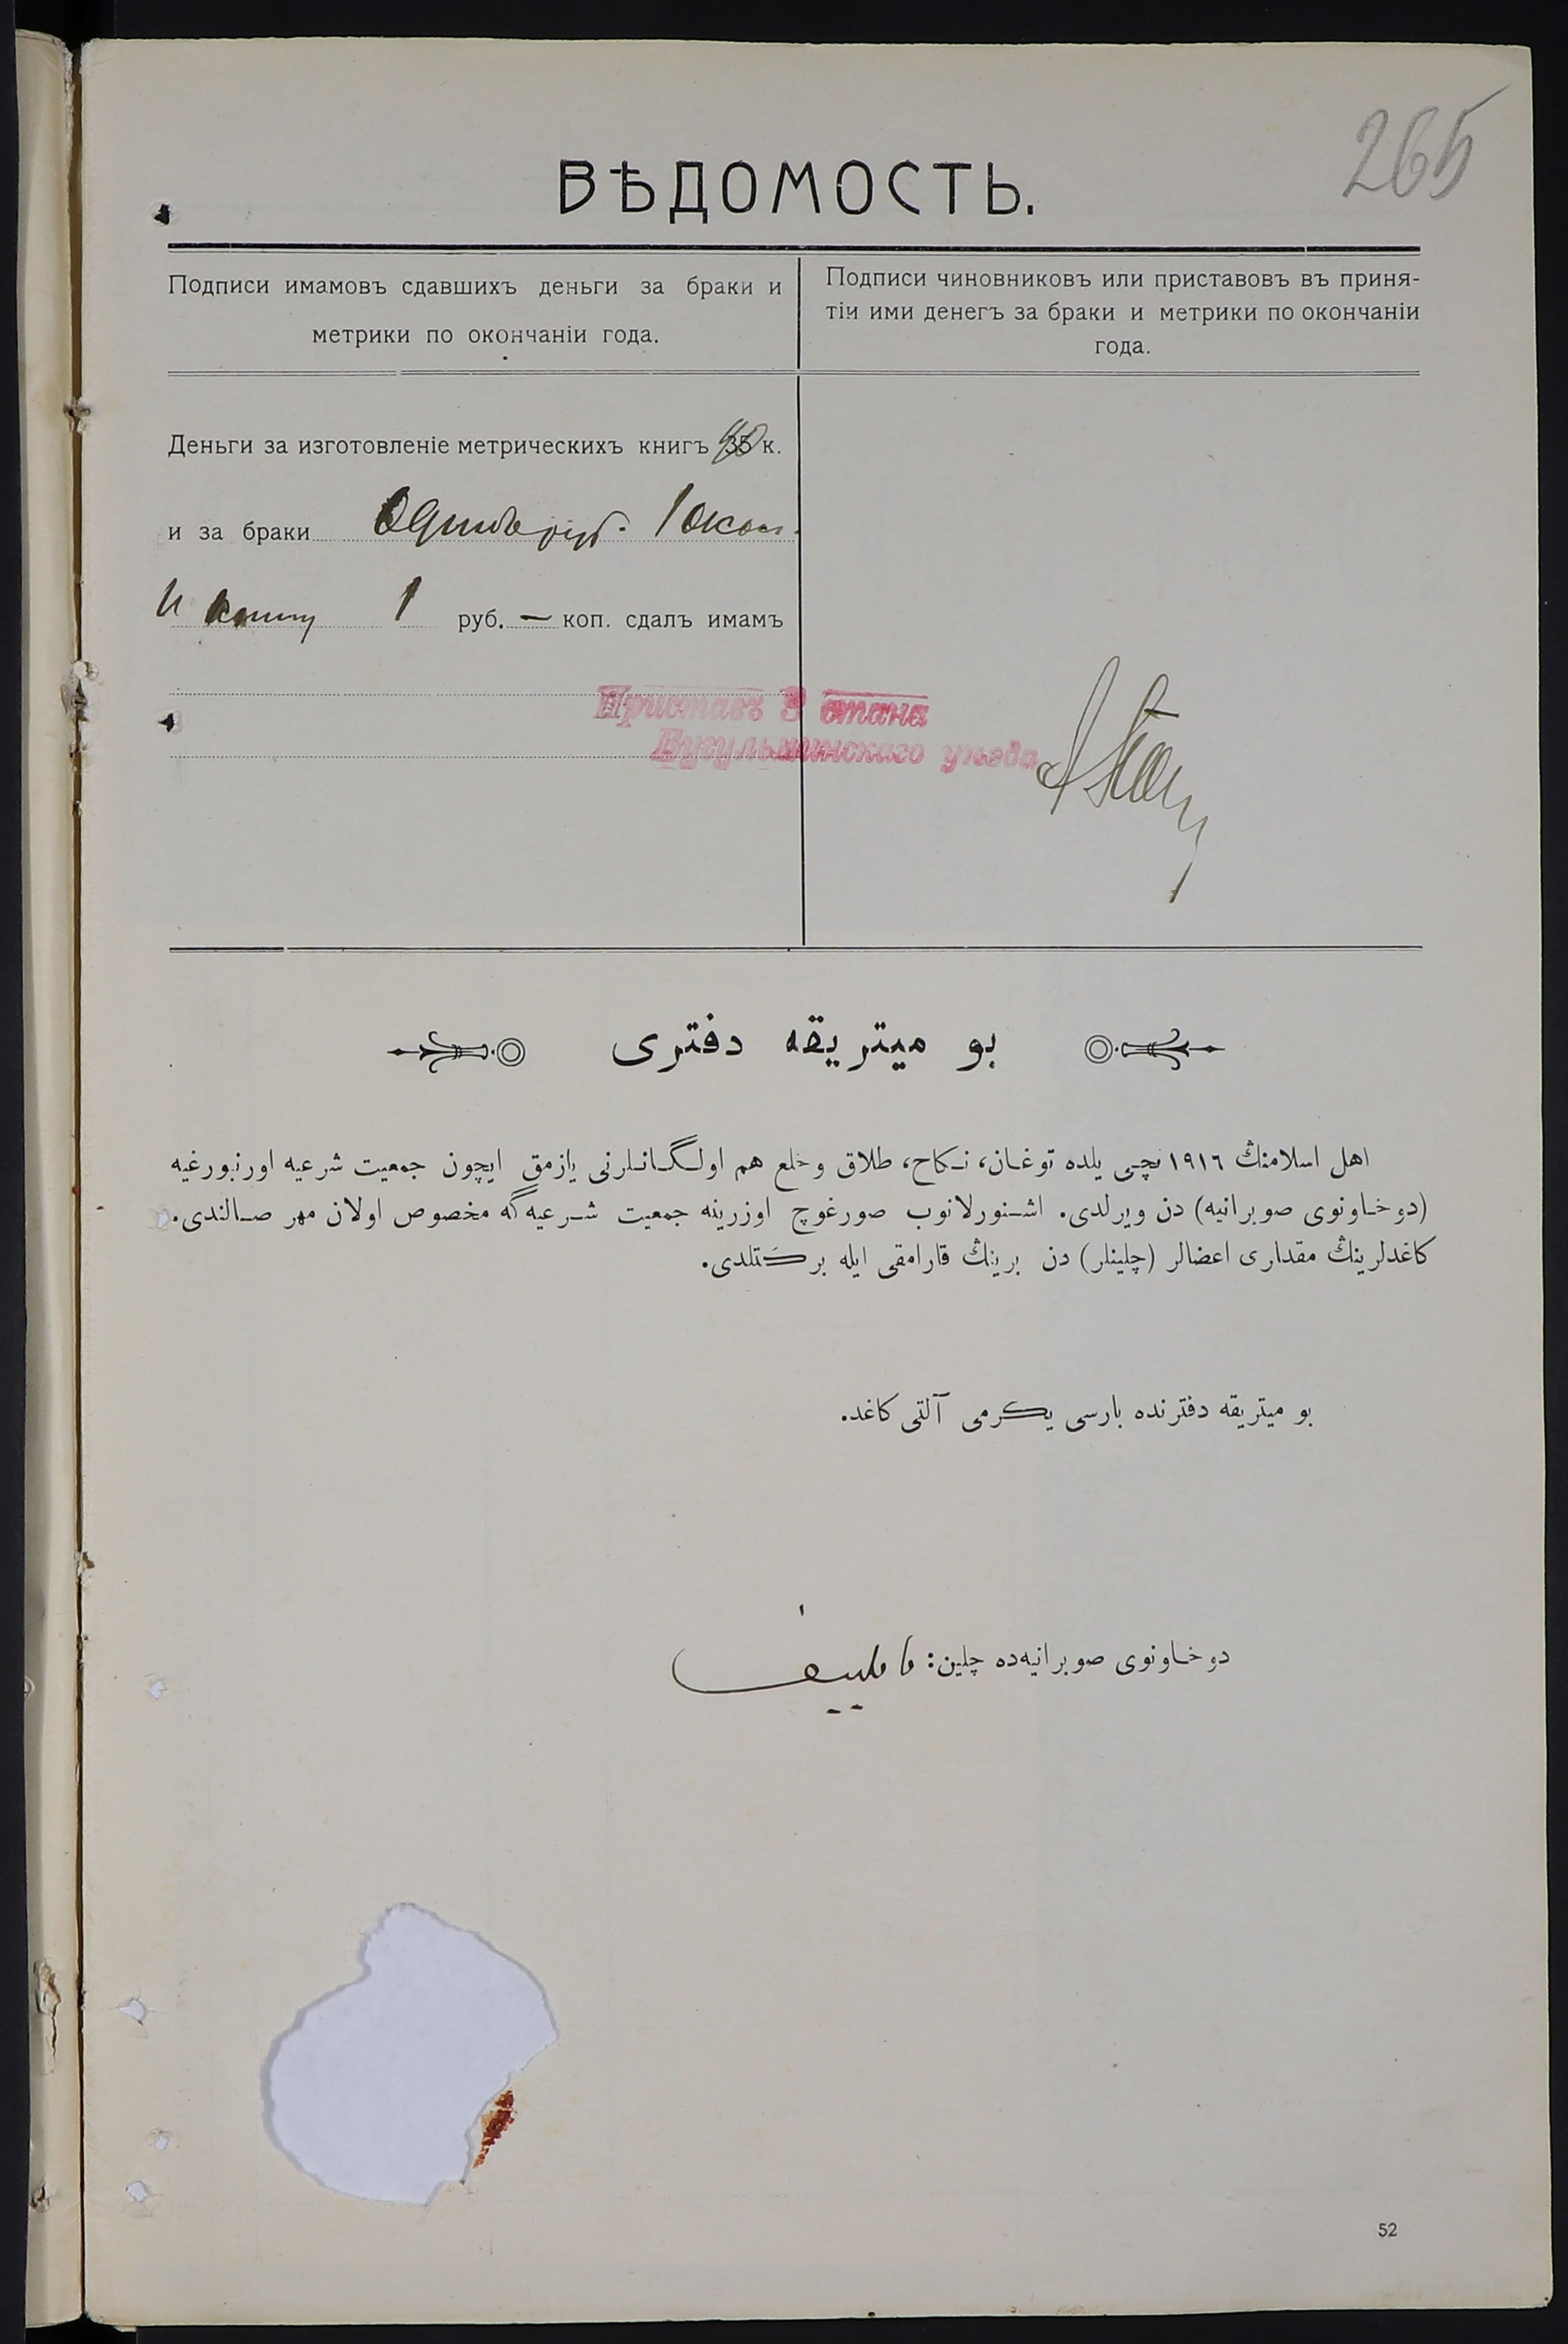 265
ВѢДОМОСТЬ.
Подписи имамовъ сдавшихъ деньги за браки и
метрики по окончаніи года.
Подписи чиновниковъ или приставовъ въ приня-
тіи ими денегъ за браки и метрики по окончаніи
года.
Деньги за изготовленіе метрическихъ книгъ 35 к.
и за браки Одинъ руб. 10 коп.
и книгу 1 руб. — коп. сдалъ имамъ
Приставъ 3 стана
Бугульминскаго уѣзда
بو ميتريقه دفترى
اهل اسلامنڭ ١٩١٦ نچى يلده توغان، نكاح، طلاق وخلع هم اولگانلرنى يازمق ايچون جمعيت شرعيه اورنبورغيه
(دوخاونوى صوبرانيه) دن ويرلدى. اشنورلانوب صورغوچ اوزرينه جمعيت شرعيه گه مخصوص اولان مهر صالندى.
كاغدلرينڭ مقدارى اعضالر (چلينلر) دن برينڭ قارامقى ايله بركَتلدى.
بو ميتريقه دفترنده بارسى يكرمى آلتى كاغد.
دوخاونوى صوبرانيه ده چلين:
52